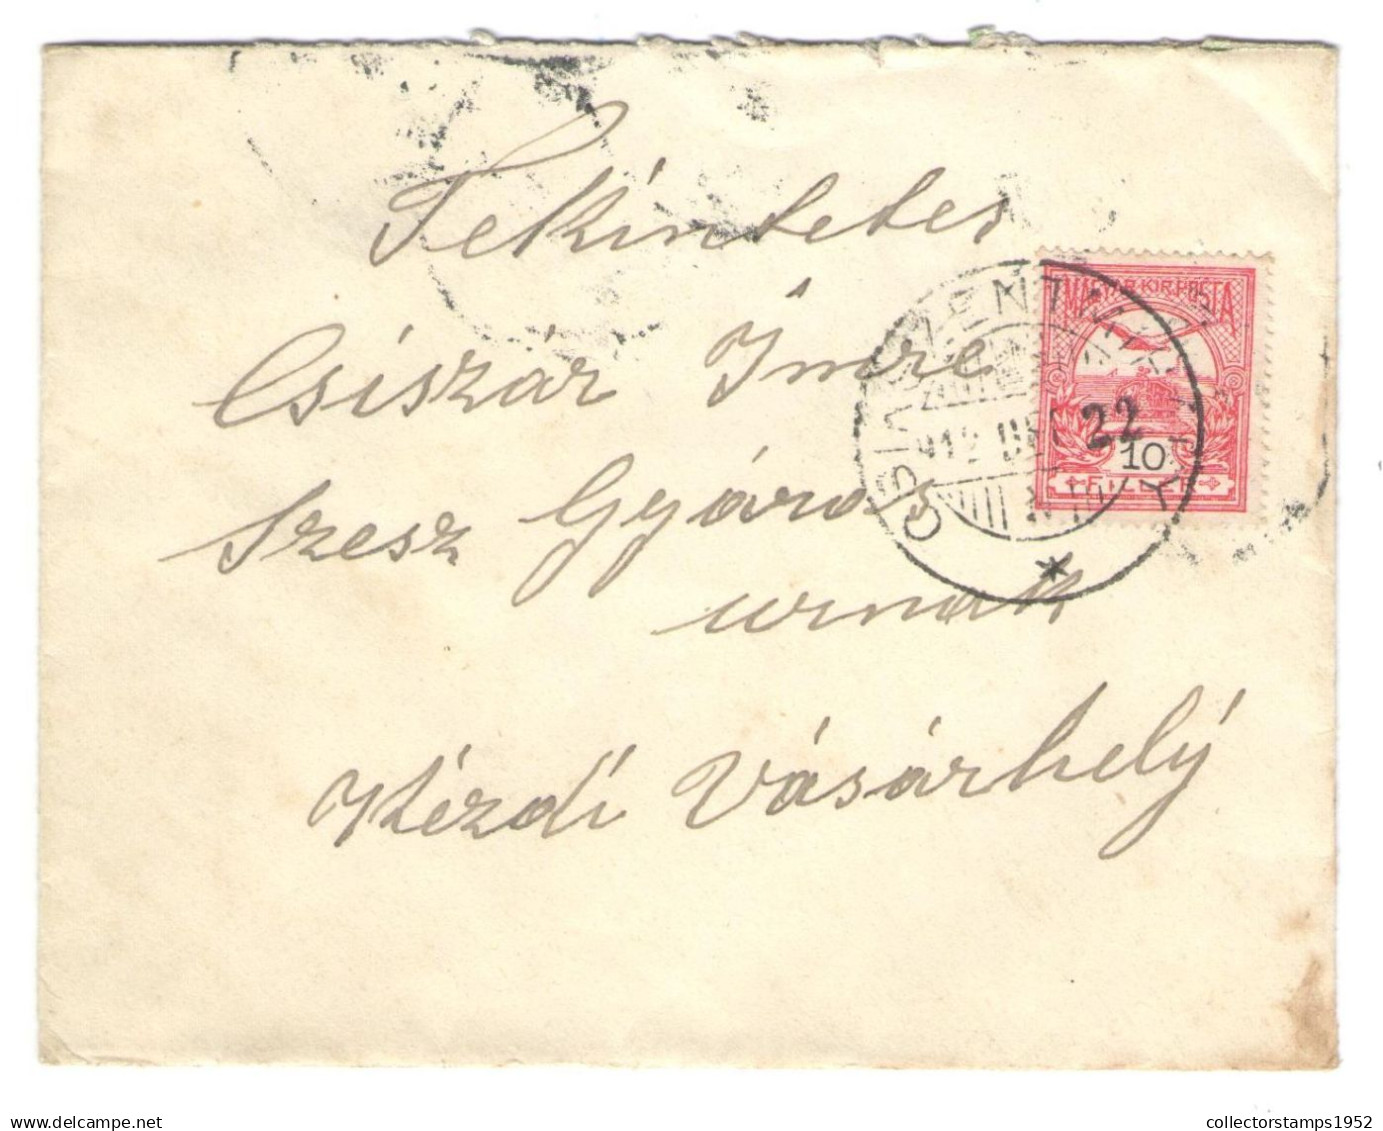 Tekintetes
Csiszár Imre
Szesz Gyáros
urnak
Kézdi Vásárhely
MAGYAR KIR. POSTA
22
10
FILLÉR
delcampe.net
collectorstamps1952